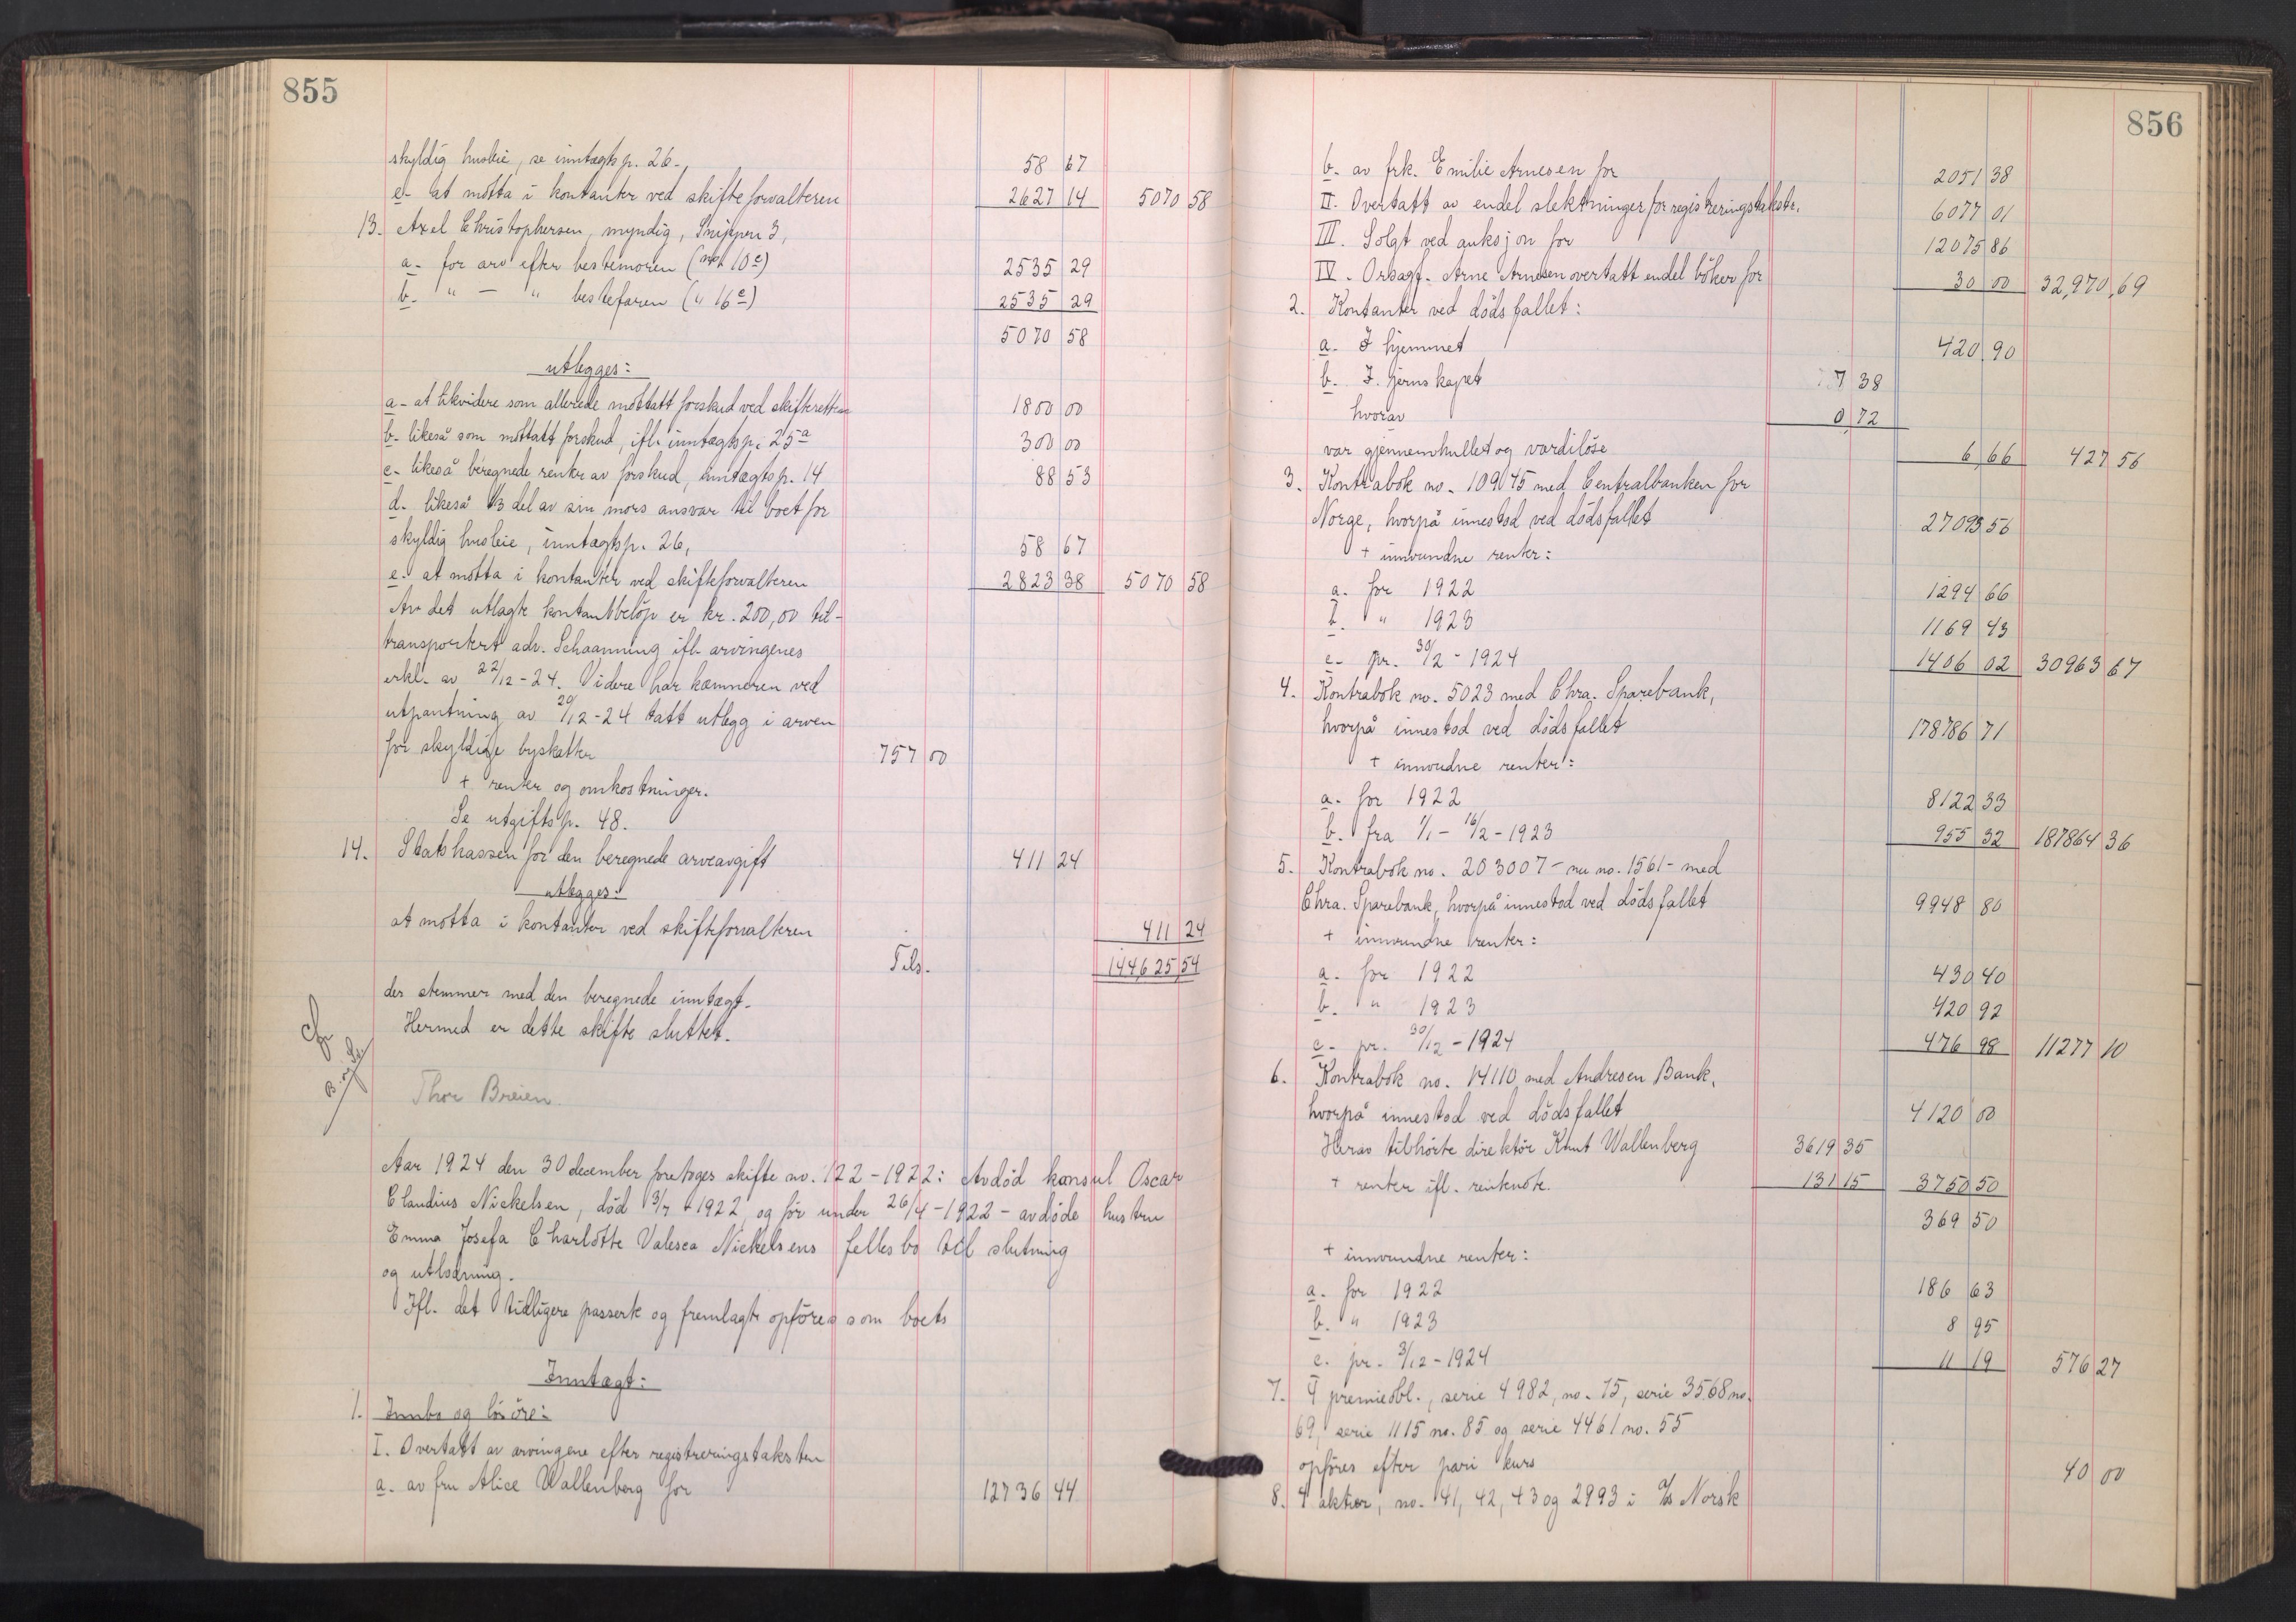 855
skyldig husleie, se inntægtsp. 26.
58 67
e- at motta i kontanter ved skifteforvalteren 2627 14 5070 58
13. Axel Christophersen, myndig, Snippen 3,
a- for arv efter bestemoren ( 10e) 2535 29
b. " - " bestefaren (" 16e) 2535 29
5070 58
utlegges:
a- at likvidere som allerede mottatt forskud ved skifteretten 1800 00
b- likeså som mottatt forskud, ifl. inntægtsp. 25a 300 00
c- likeså beregnede renter av forskud, inntægtsp. 14 88 53
d. likeså 1/3 del av sin mors ansvar til boet for
skyldig husleie, inntægtsp. 26, 58 67
e. at motta i kontanter ved skifteforvalteren 2823 38 5070 58
Av det utlagte kontantbeløp er kr. 200,00 til-
transportert adv. Schaanning ifl. arvingenes
erkl. av 22/12-24. Videre har kæmneren ved
utpantning av 29/12-24 tatt utlegg i arven
for skyldige byskatter 757 00
+ renter og omkostninger.
Se utgiftsp. 48.
14. Statskassen for den beregnede arveavgift 411 24
utlegges:
at motta i kontanter ved skifteforvalteren 411 24
Tils. 144625 54
der stemmer med den beregnede inntægt.
Hermed er dette skifte sluttet.
Thor Breien.
Aar 1924 den 30 december foretoges skifte no. 122-1922: Avdød konsul Oscar
Claudius Nickelsen, død 3/7 1922, og før under 26/4-1922 - avdøde hustru
Emma Josefa Charlotte Valesca Nickelsens fellesbo til slutning
og utlodning.
Ifl. det tidligere passerte og fremlagte opføres som boets
Inntægt:
1. Innbo og løsøre:
I. Overtatt av arvingene efter registreringstaksten
a. av fru Alice Wallenberg for 12736 44
856
b. av frk. Emilie Arnesen for 2051 38
II. Overtatt av endel slektninger for registreringstakstr. 6077 01
III. Solgt ved auksjon for 12075 86
IV. Orsagf. Arne Arnesen overtatt endel bøker for 30 00 32,970,69
2. Kontanter ved dødsfallet:
a. I hjemmet 420 90
b. I jernskapet 7 38
hvorav 0 72
var gjennemhullet og værdiløse 6 66 427 56
3. Kontrabok no. 109145 med Centralbanken for
Norge, hvorpå innestod ved dødsfallet 27093 56
+ innvundne renter:
a. for 1922 1294 66
b. " 1923 1169 43
c- pr. 30/12-1924 1406 02 30963 67
4. Kontrabok no. 5023 med Chra. Sparebank,
hvorpå innestod ved dødsfallet 178786 71
+ innvudne renter:
a. for 1922 8122 33
b. fra 1/1-16/2-1923 955 32 187864 36
5. Kontrabok no. 203007- nu no. 1561- med
Chra. Sparebank, hvorpå innestod ved dødsfallet 9948 80
+ innvundne renter:
a. for 1922 430 40
b. " 1923 420 92
c- pr. 30/12-1924 476 98 11277 10
6. Kontrabok no. 14110 med Andresen Bank,
hvorpå innestod ved dødsfallet 4120 00
Herav tilhørte direktør Knut Wallenberg 3619 35
+ renter ifl. rentenote. 131 15 3750 50
369 50
+ innvundne renter:
a. for 1922 186 63
b. " 1923 8 95
c. pr. 3/12-1924 11 19 576 27
7. 4 premieobl., serie 4982, no. 75, serie 3568 no.
69, serie 1115 no. 85 og serie 4461 no. 55
opføres efter pari kurs 40 00
8. 4 aktier, no. 41, 42, 43 og 2993 i A/s Norsk